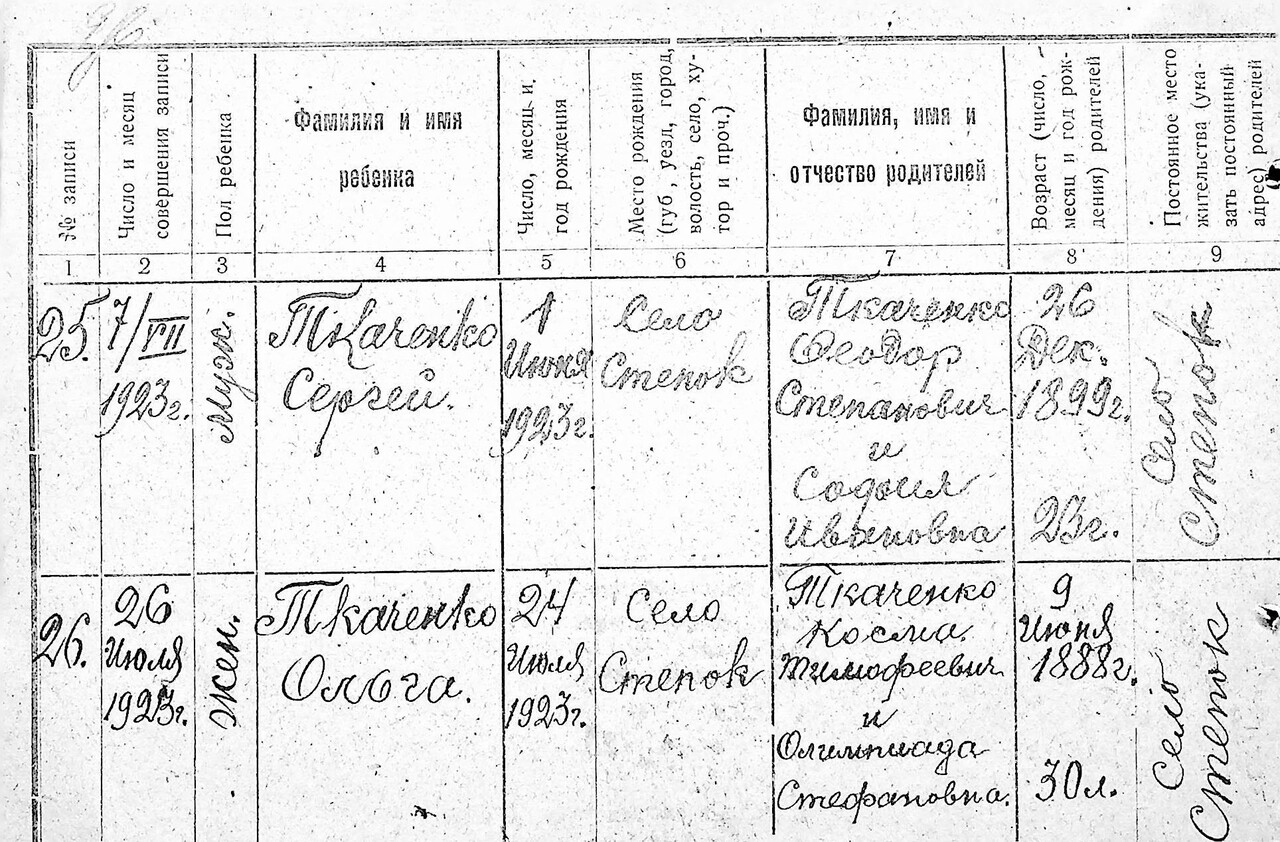 № записи
Число и месяц
совершения записи
Пол ребенка
Фамилия и имя
ребенка
Число, месяц и
год рождения
Место рождения
(губ, уезд, город,
волость, село, ху-
тор и проч.)
Фамилия, имя и
отчество родителей
Возраст (число,
месяц и год рож-
дения) родителей
Постоянное место
жительства (ука-
зать постоянный
адрес) родителей
1 2 3 4 5 6 7 8 9
25.
7/VII
1923г.
Муж.
Ткаченко
Сергей.
1
Июня
1923г.
Село
Степок
Ткаченко
Феодор
Степанович
и
София
Ивановна
26
Дек.
1899г.
23г.
Село
Степок
26.
26
Июля
1923г.
Жен.
Ткаченко
Ольга.
24
Июля
1923г.
Село
Степок
Ткаченко
Косма
Тимофеевич
и
Олимпиада
Стефановна.
9
Июня
1888г.
30л.
Село
Степок